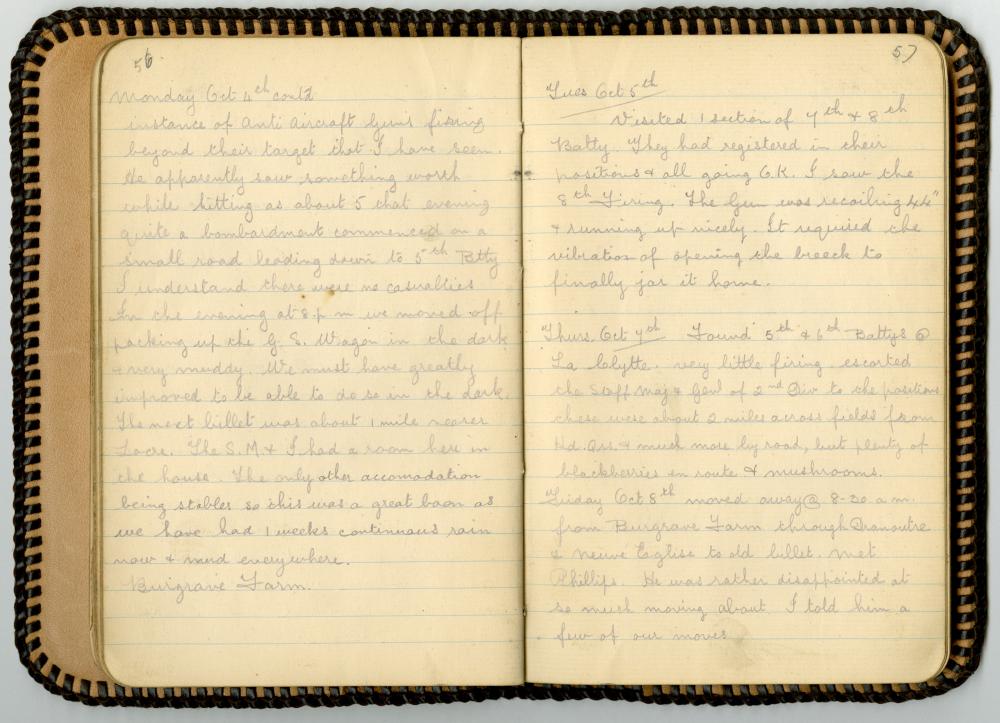 56
Monday Oct 4th contd
instance of Anti Aircraft Guns firing
beyond their target that I have seen.
He apparently saw something worth
while hitting as about 5 that evening
quite a bombardment commenced on a
small road leading down to 5th Batty
I understand there were no casualties
In the evening at 8 p m we moved off
packing up the G. S. Wagon in the dark
& very muddy. We must have greatly
improved to be able to do so in the dark.
The next billet was about 1 mile nearer
Locre. The S.M. & I had a room here in
the house. The only other accomodation
being stables so this was a great boon as
we have had 1 weeks continuous rain
now & mud everywhere.
Burgrave Farm.
57
Tues Oct 5th
Visited 1 section of 7th & 8th
Batty. They had registered in their
positions & all going O.K. I saw the
8th Firing. The Gun was recoiling 44"
& running up nicely. It required the
vibration of opening the breech to
finally jar it home.
Thurs. Oct 7th Found 5th & 6th Battys @
La Clytte. very little firing. escorted
the Staff Maj & Genl of 2nd Div to the positions
these were about 2 miles across fields from
Hd. Qrs. & much more by road, but plenty of
blackberries en route & mushrooms.
Friday Oct 8th moved away @ 8-30 a.m.
from Burgrave Farm through Dranoutre
& Neuve Eglise to old billet. met
Phillips. He was rather disappointed at
so much moving about. I told him a
few of our moves